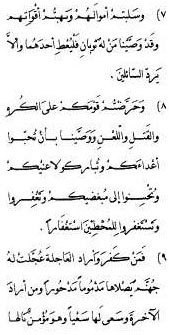 ٧) وَسَلَبْتُمْ أَمْوَالَهُمْ وَنَهَبْتُمْ أَقْوَاتَهُم
وَقَدْ وَصَّيْنَا مَنْ لَهُ ثَوْبَانِ فَلْيُعْطِ أَحَدَهُمَا وَأَلَّا
يَرُدَّ السَّائِلِينَ.
٨) وَحَرَّضْتُمْ قَوْمَكُمْ عَلَى الْكُرْهِ
وَالْقَتْلِ وَاللَّعْنِ وَوَصَّيْنَا بِأَنْ تُحِبُّوا
أَعْدَاءَكُمْ وَتُبَارِكُوا لَاعِنِيكُمْ
وَتُحْسِنُوا إِلَى مُبْغِضِيكُمْ وَتَغْفِرُوا
وَتَسْتَغْفِرُوا لِلْمُخْطِئِينَ اسْتِغْفَارًا.
٩) فَمَنْ كَفَرَ وَأَرَادَ الْعَاجِلَةَ عَجَّلْتَ لَهُ
جَهَنَّمَ يَصْلَاهَا مَذْمُومًا مَدْحُورًا وَمَنْ أَرَادَ
الْآخِرَةَ وَسَعَى لَهَا سَعْيَهَا وَهُوَ مُؤْمِنٌ